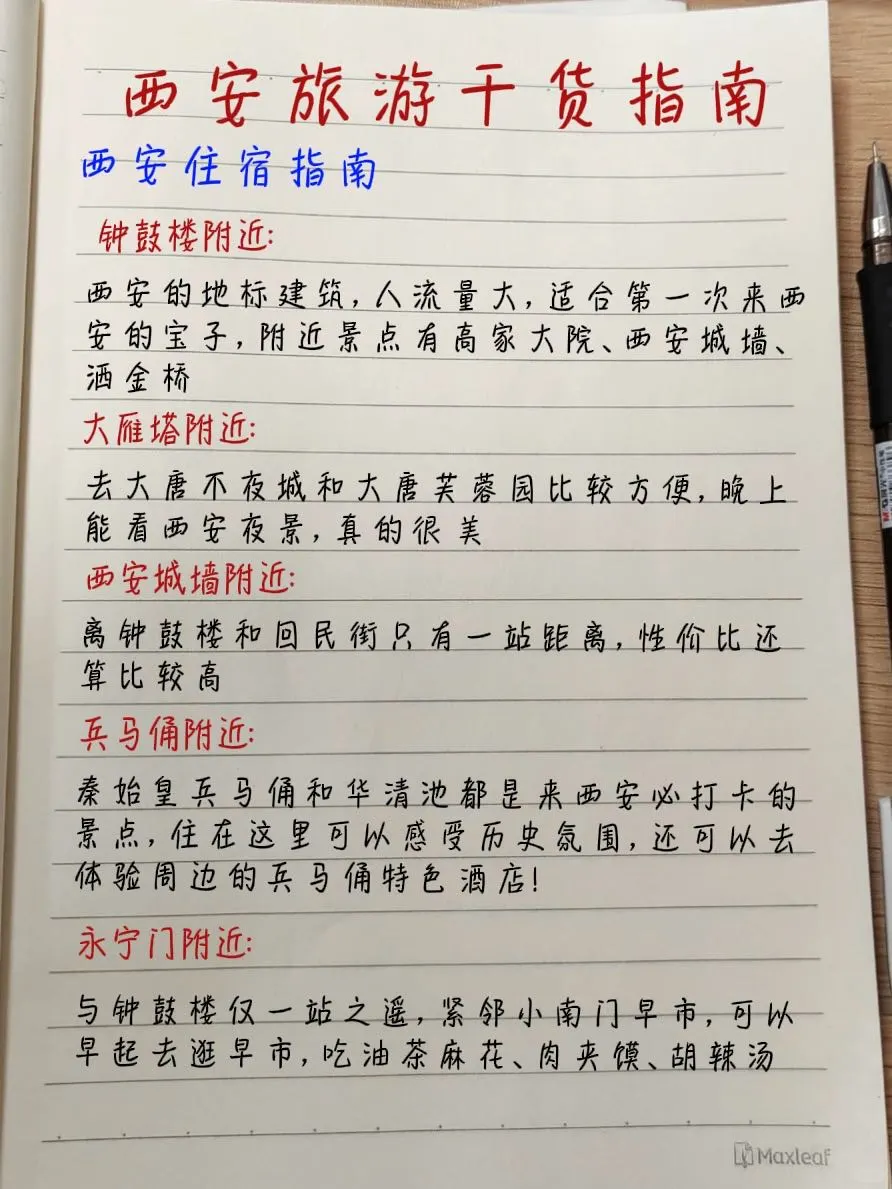 西安旅游干货指南
西安住宿指南
钟鼓楼附近:
西安的地标建筑,人流量大,适合第一次来西
安的宝子,附近景点有高家大院、西安城墙、
洒金桥
大雁塔附近:
去大唐不夜城和大唐芙蓉园比较方便,晚上
能看西安夜景,真的很美
西安城墙附近:
离钟鼓楼和回民街只有一站距离,性价比还
算比较高
兵马俑附近:
秦始皇兵马俑和华清池都是来西安必打卡的
景点,住在这里可以感受历史氛围,还可以去
体验周边的兵马俑特色酒店!
永宁门附近:
与钟鼓楼仅一站之遥,紧邻小南门早市,可以
早起去逛早市,吃油茶麻花、肉夹馍、胡辣汤
Maxleaf